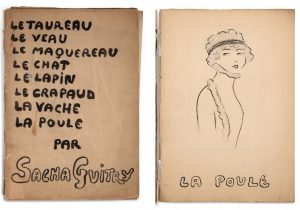 LE TAUREAU
LE VEAU
LE MAQUEREAU
LE CHAT
LE LAPIN
LE CRAPAUD
LA VACHE
LA POULE
PAR
SACHA GUITRY
LA POULE